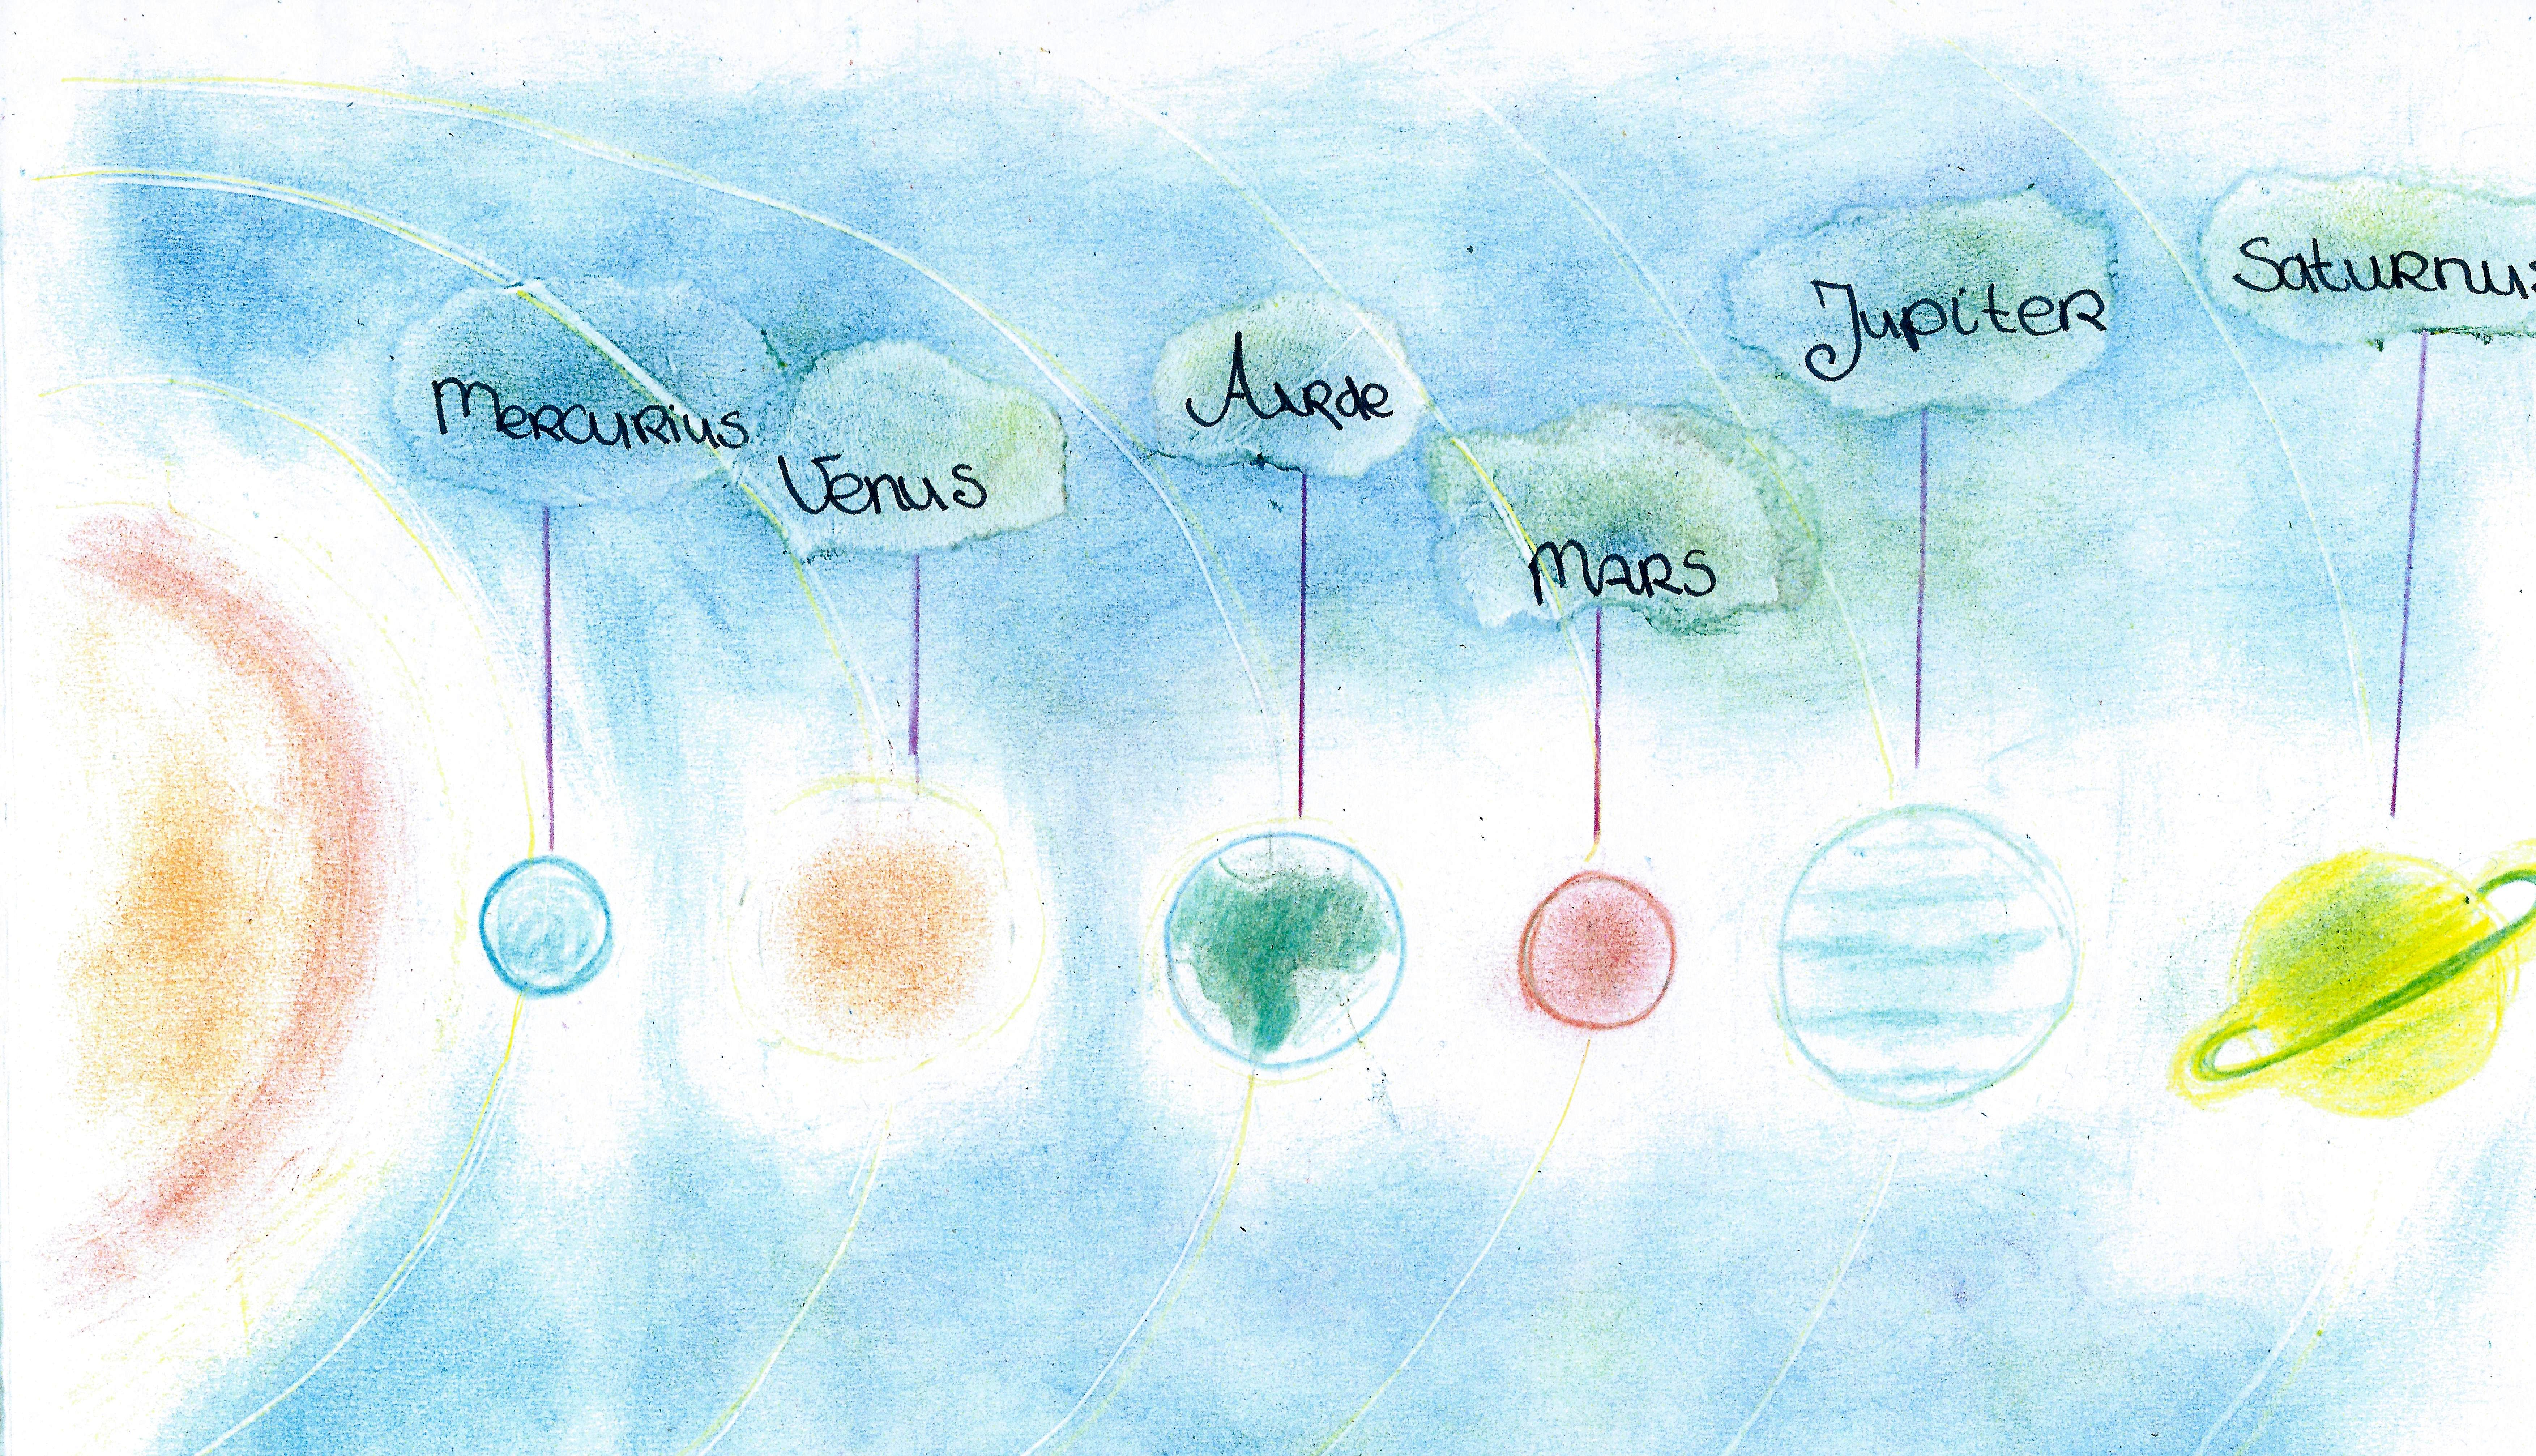 Mercurius
Venus
Aarde
Mars
Jupiter
Saturnus